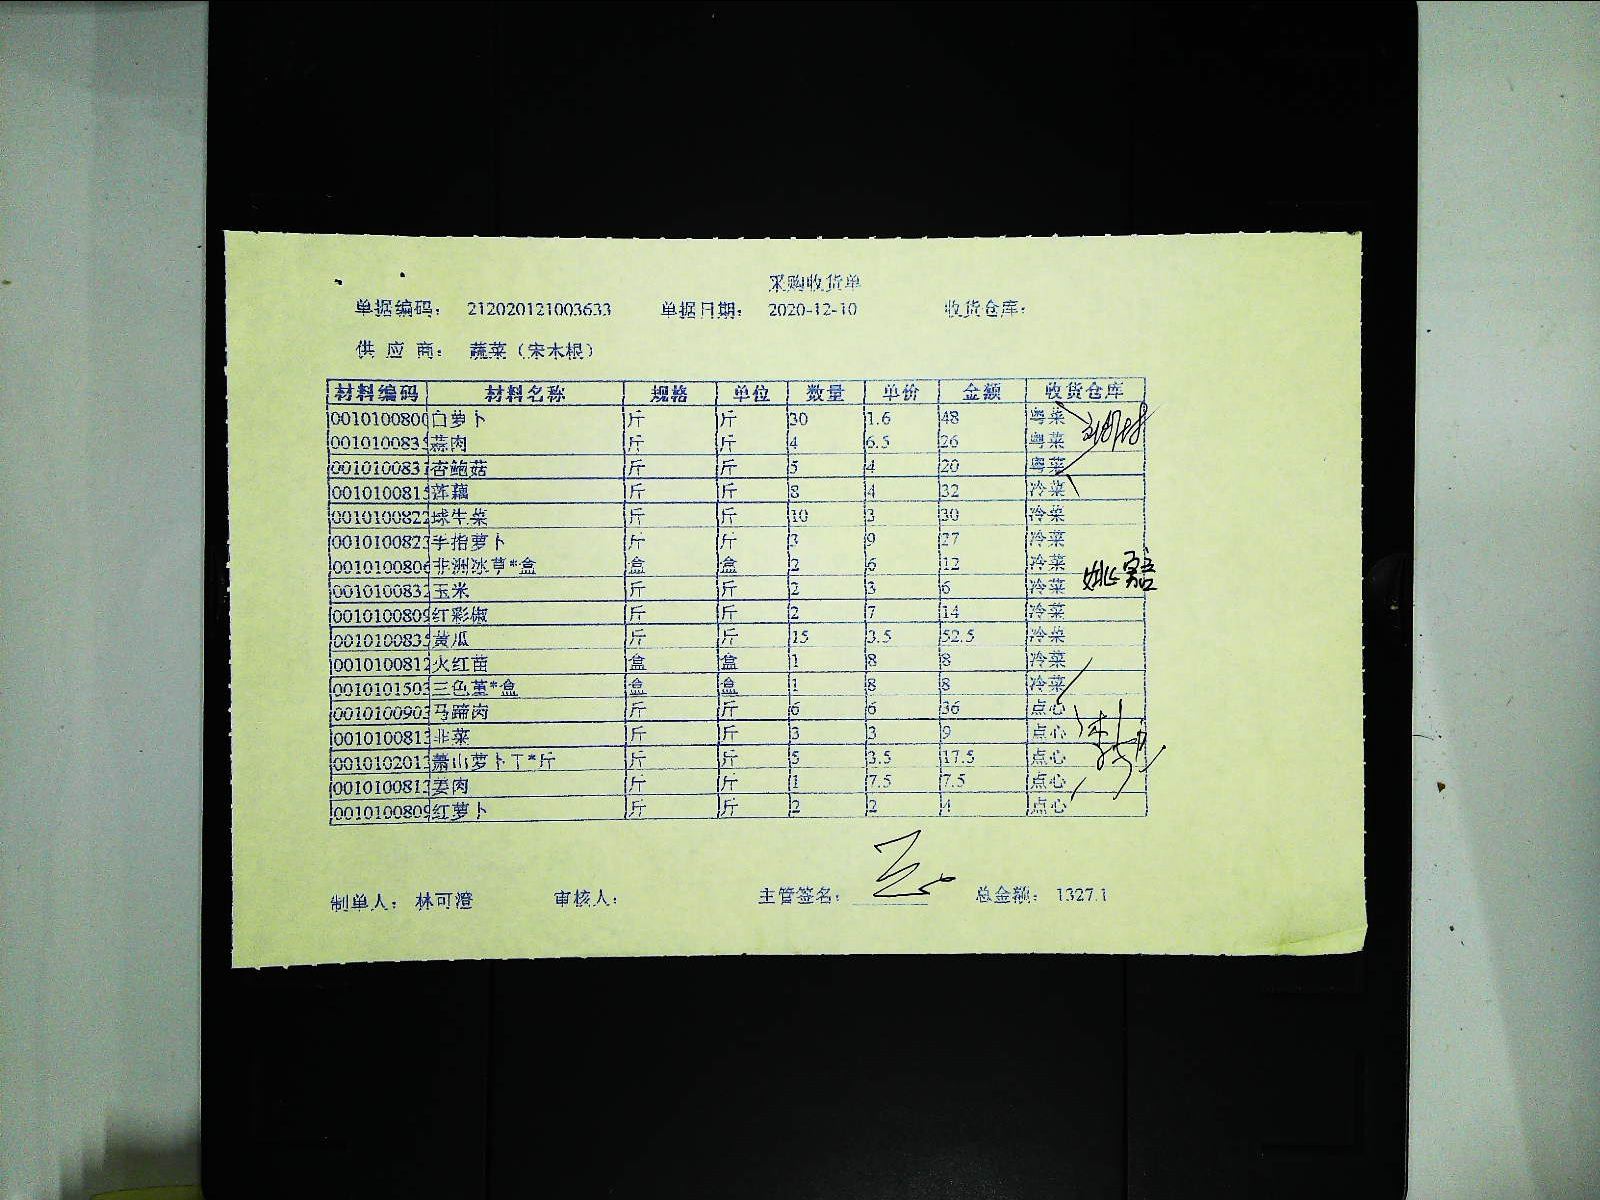 采购收货单
单据编码： 212020121003633 单据日期： 2020-12-10 收货仓库：
供 应 商： 蔬菜（宋本根）
材料编码 材料名称 规格 单位 数量 单价 金额 收货仓库
0010100800 白萝卜 斤 斤 30 1.6 48 粤菜
0010100835 蒜肉 斤 斤 4 6.5 26 粤菜
0010100831 杏鲍菇 斤 斤 5 4 20 粤菜
0010100815 莲藕 斤 斤 8 4 32 冷菜
0010100822 球生菜 斤 斤 10 3 30 冷菜
0010100823 手指萝卜 斤 斤 3 9 27 冷菜
0010100806 非洲冰草*盒 盒 盒 2 6 12 冷菜
0010100832 玉米 斤 斤 2 3 6 冷菜
0010100809 红彩椒 斤 斤 2 7 14 冷菜
0010100835 黄瓜 斤 斤 15 3.5 52.5 冷菜
0010100812 火红苗 盒 盒 1 8 8 冷菜
0010101503 三色堇*盒 盒 盒 1 8 8 冷菜
0010100903 马蹄肉 斤 斤 6 6 36 点心
0010100813 韭菜 斤 斤 3 3 9 点心
0010102013 萧山萝卜干*斤 斤 斤 5 3.5 17.5 点心
0010100813 姜肉 斤 斤 1 7.5 7.5 点心
0010100809 红萝卜 斤 斤 2 2 4 点心
制单人： 林可澄 审核人： 主管签名： 总金额： 1327.1